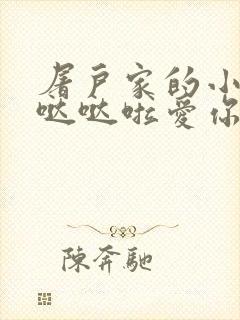 屠戶家的小
哒哒啦愛你
陳奔馳